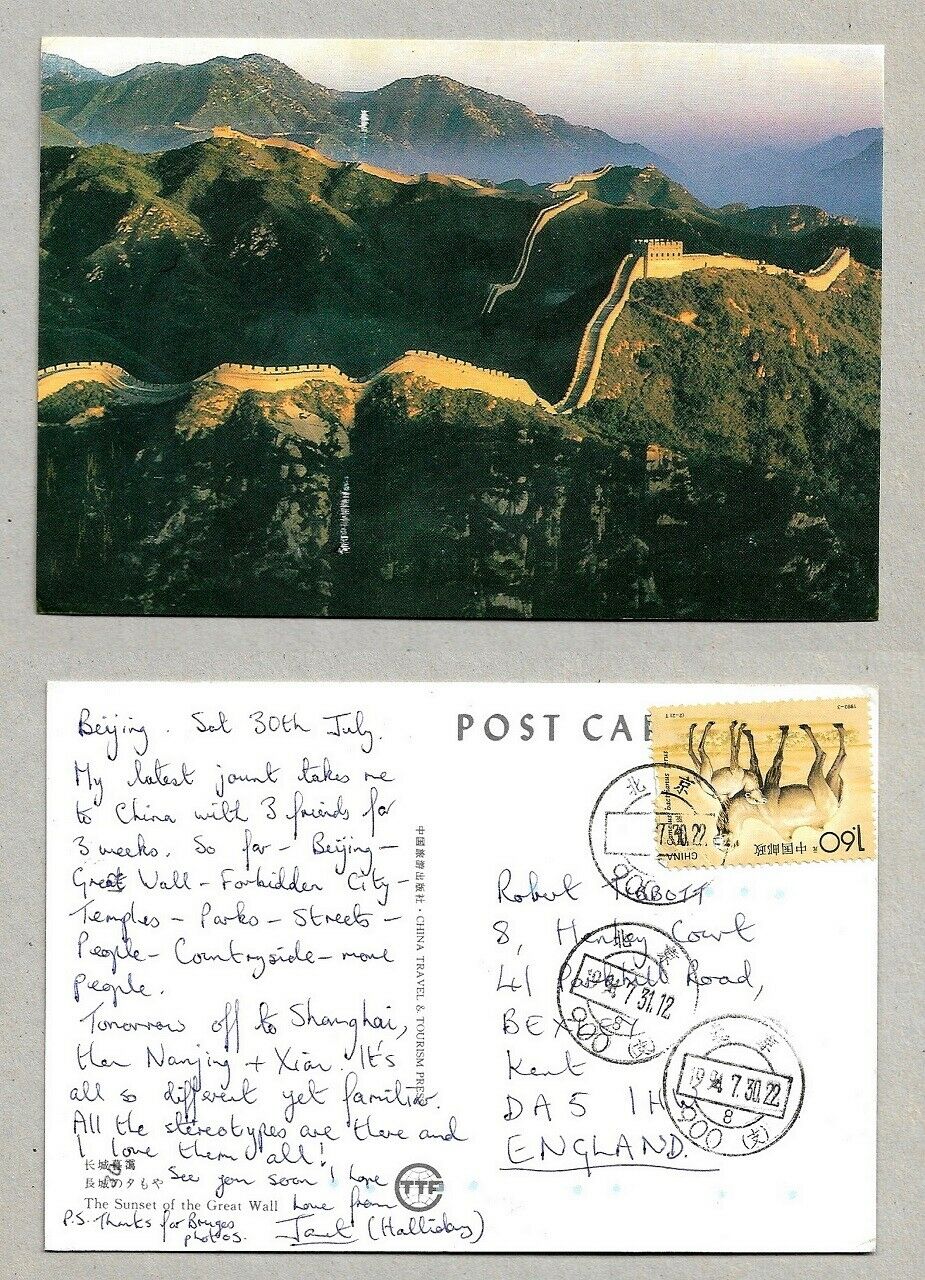 Beijing. Sat 30th July.
My latest jaunt takes me
to China with 3 friends for
3 weeks. So far - Beijing -
Great Wall - Forbidden City -
Temples - Parks - Streets -
People - Countryside - more
People.
Tomorrow off to Shanghai,
then Nanjing + Xian. It's
all so different yet familiar.
All the stereotypes are there and
I love them all!
See you soon I hope
Love from
Janet (Halliday)
P.S. Thanks for Bruges
photos.
长城暮霭
長城の夕もや
The Sunset of the Great Wall
中国旅游出版社·CHINA TRAVEL & TOURISM PRESS
TTF
POST CA
1993-3
(2-2)T
1.60元
中国邮政
CHINA
北京
7.30.22
北京
1994.7.31.12
5
900 (支)
北京
1994.7.30.22
8
900 (支)
Robert TIBBOTT
8, Henley Court
41 Parkhill Road,
BEXLEY
Kent
DA5 1H
ENGLAND.